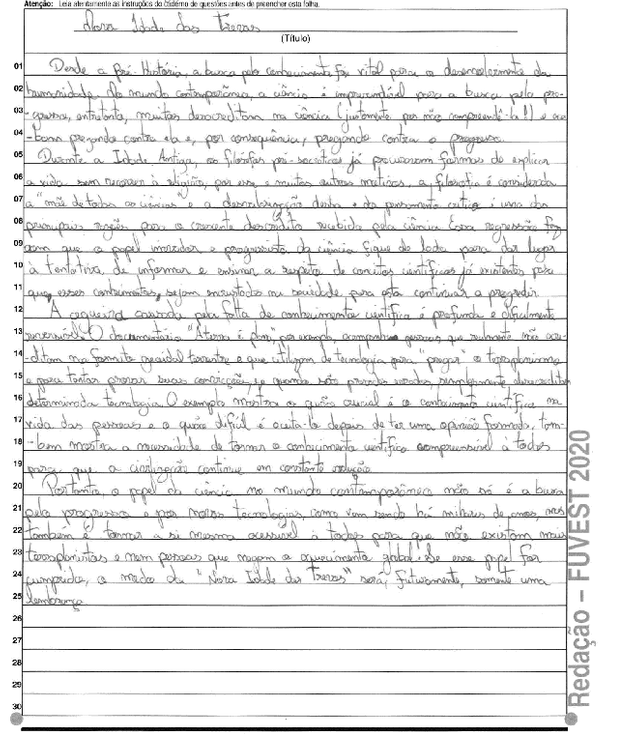 Atenção: Leia atentamente as instruções do caderno de questões antes de preencher esta folha.
Nova Idade das Trevas
(Título)
01 Desde a Pré-História, a busca pelo conhecimento foi vital para o desenvolvimento da
02 humanidade. No mundo contemporâneo, a ciência é imprescindível para a busca pelo pro-
03 gresso, entretanto, muitos desacreditam na ciência (justamente por não compreendê-la!) e
04 pregando contra ela e, por consequência, pregando contra o progresso.
05 Durante a Idade Antiga, os filósofos pré-socráticos já procuravam formas de explicar
06 a vida sem recorrer à religião, por esse e muitos outros motivos, a filosofia é considerada
07 a "mãe de todas as ciências" e a desvalorização desta e do pensamento crítico é uma das
08 principais razões para o crescente descrédito recebido pela ciência. Essa regressão faz
09 com que o papel inovador e progressista da ciência fique de lado para dar lugar
10 à tentativa de informar e ensinar a respeito de conceitos científicos já existentes para
11 que esses conhecimentos sejam enraizados na sociedade para esta continuar a progredir.
12 A cegueira causada pela falta de conhecimento científico é profunda e dificilmente
13 reversível. O documentário "A terra é plana", por exemplo, acompanha pessoas que realmente não acre-
14 ditam no formato geoidal terrestre e que utilizam de tecnologia para "pregar" o terraplanismo
15 e para tentar provar suas convicções, e quando são provados errados, simplesmente desacreditam
16 determinada tecnologia. O exemplo mostra o quão crucial é o conhecimento científico na
17 vida das pessoas e o quão difícil é aceitá-lo depois de ter uma opinião formada, tam-
18 -bém mostra a necessidade de tornar o conhecimento científico compreensível a todos
19 para que a civilização continue em constante evolução.
20 Portanto, o papel da ciência no mundo contemporâneo não só é a busca
21 pelo progresso e por novas tecnologias, como vem sendo há milhares de anos, mas
22 também é tornar a si mesma acessível à todos para que não existam mais
23 terraplanistas e nem pessoas que negam o aquecimento global. Se esse papel for
24 cumprido, o medo da "Nova Idade das Trevas" será, futuramente, somente uma
25 lembrança.
26
27
28
29
30
Redação – FUVEST 2020